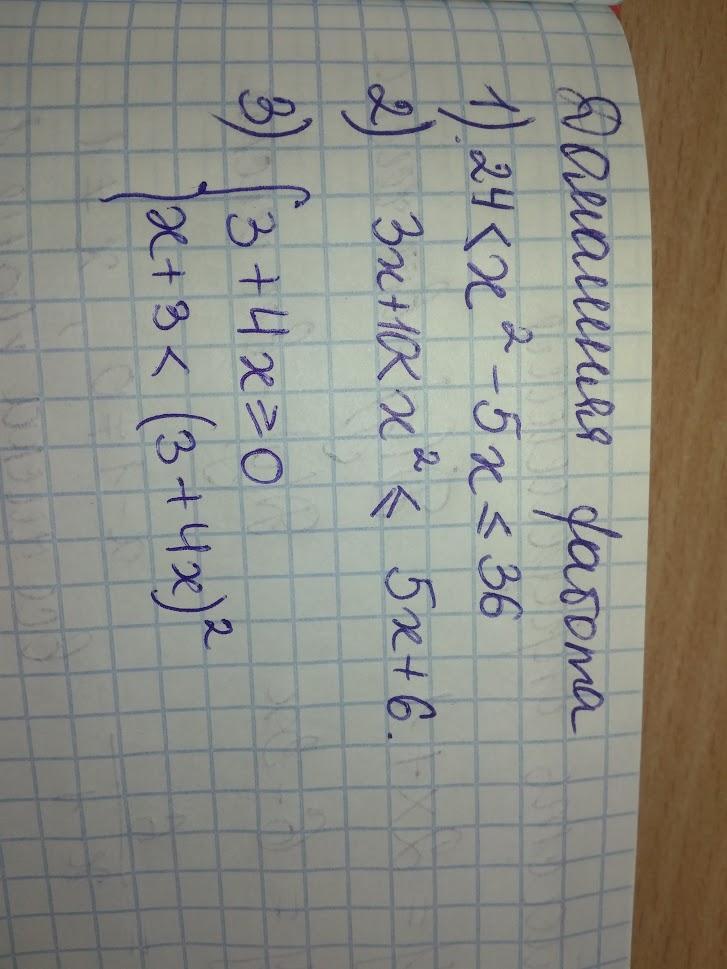 Домашняя работа
1) 24 < x² - 5x ≤ 36
2) 3x+10 < x² ≤ 5x+6.
3) { 3+4x ≥ 0
x+3 < (3+4x)²